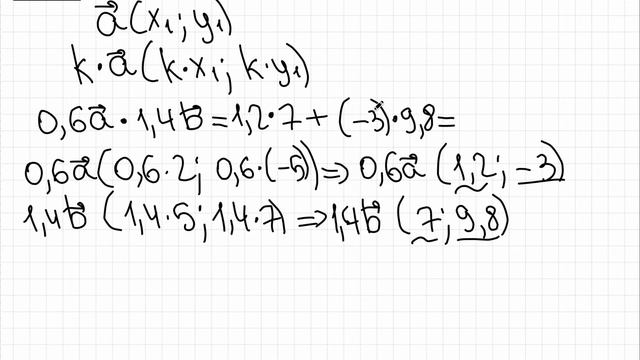 a⃗(x₁; y₁)
k·a⃗(k·x₁; k·y₁)
0,6a⃗·1,4b⃗=1,2·7+(-3)·9,8=
0,6a⃗(0,6·2; 0,6·(-5))⇒0,6a⃗(1,2; -3)
1,4b⃗(1,4·5; 1,4·7)⇒1,4b⃗(7; 9,8)